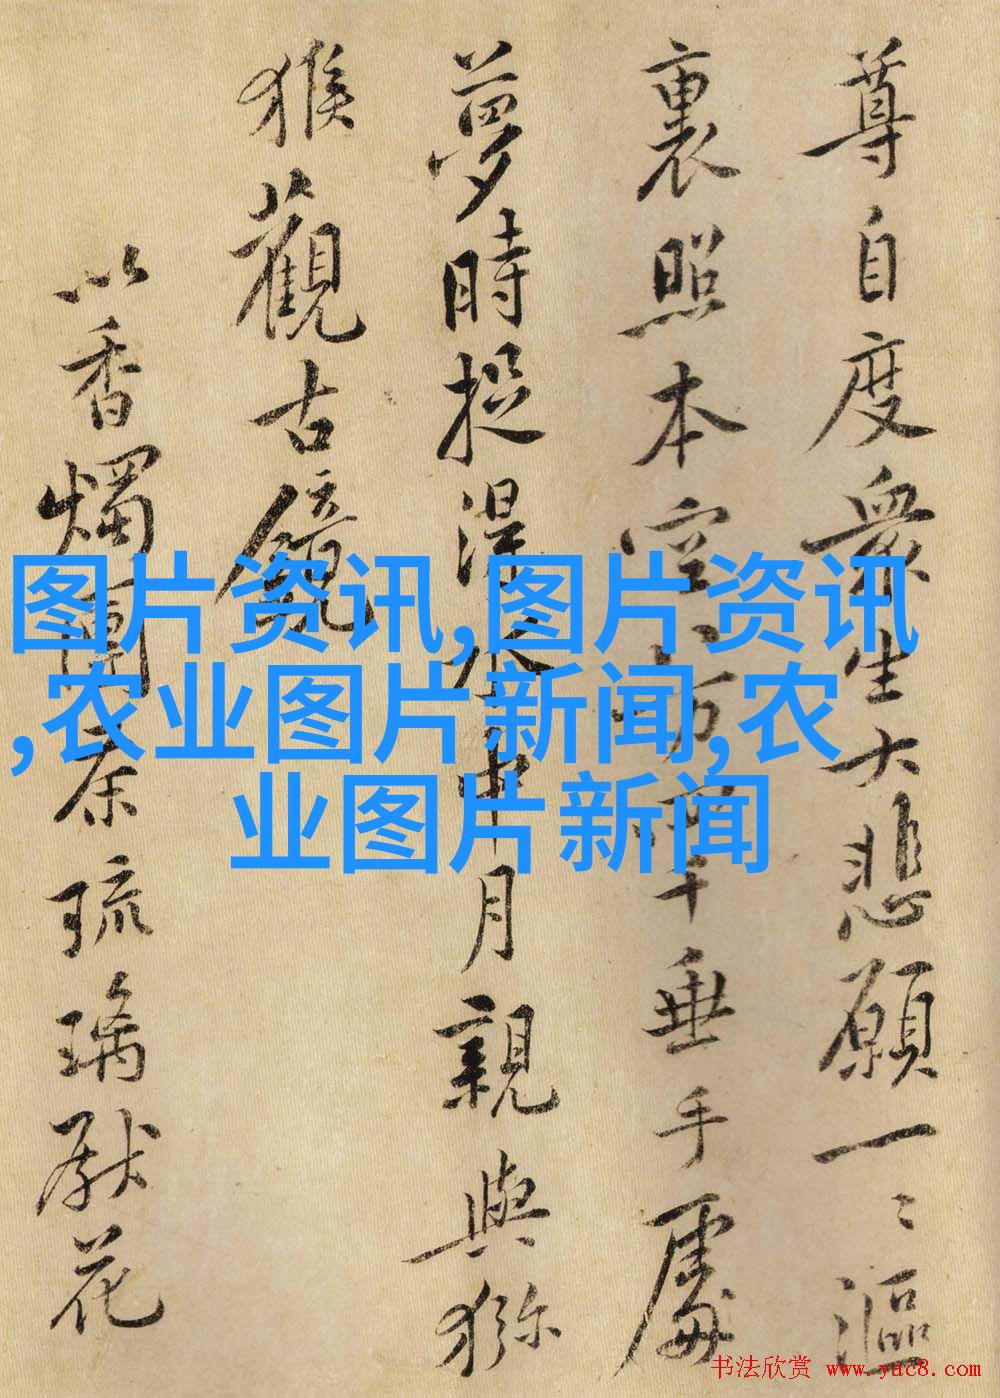 尊自度衆生大悲願一〻漚
裏照本空方垂手處
夢時捉得水中月親與獼
猴觀古鏡
以香燭團茶琉璃献花
图片资讯,图片资讯
,农业图片新闻,农
业图片新闻
书法欣赏 www.yac8.com